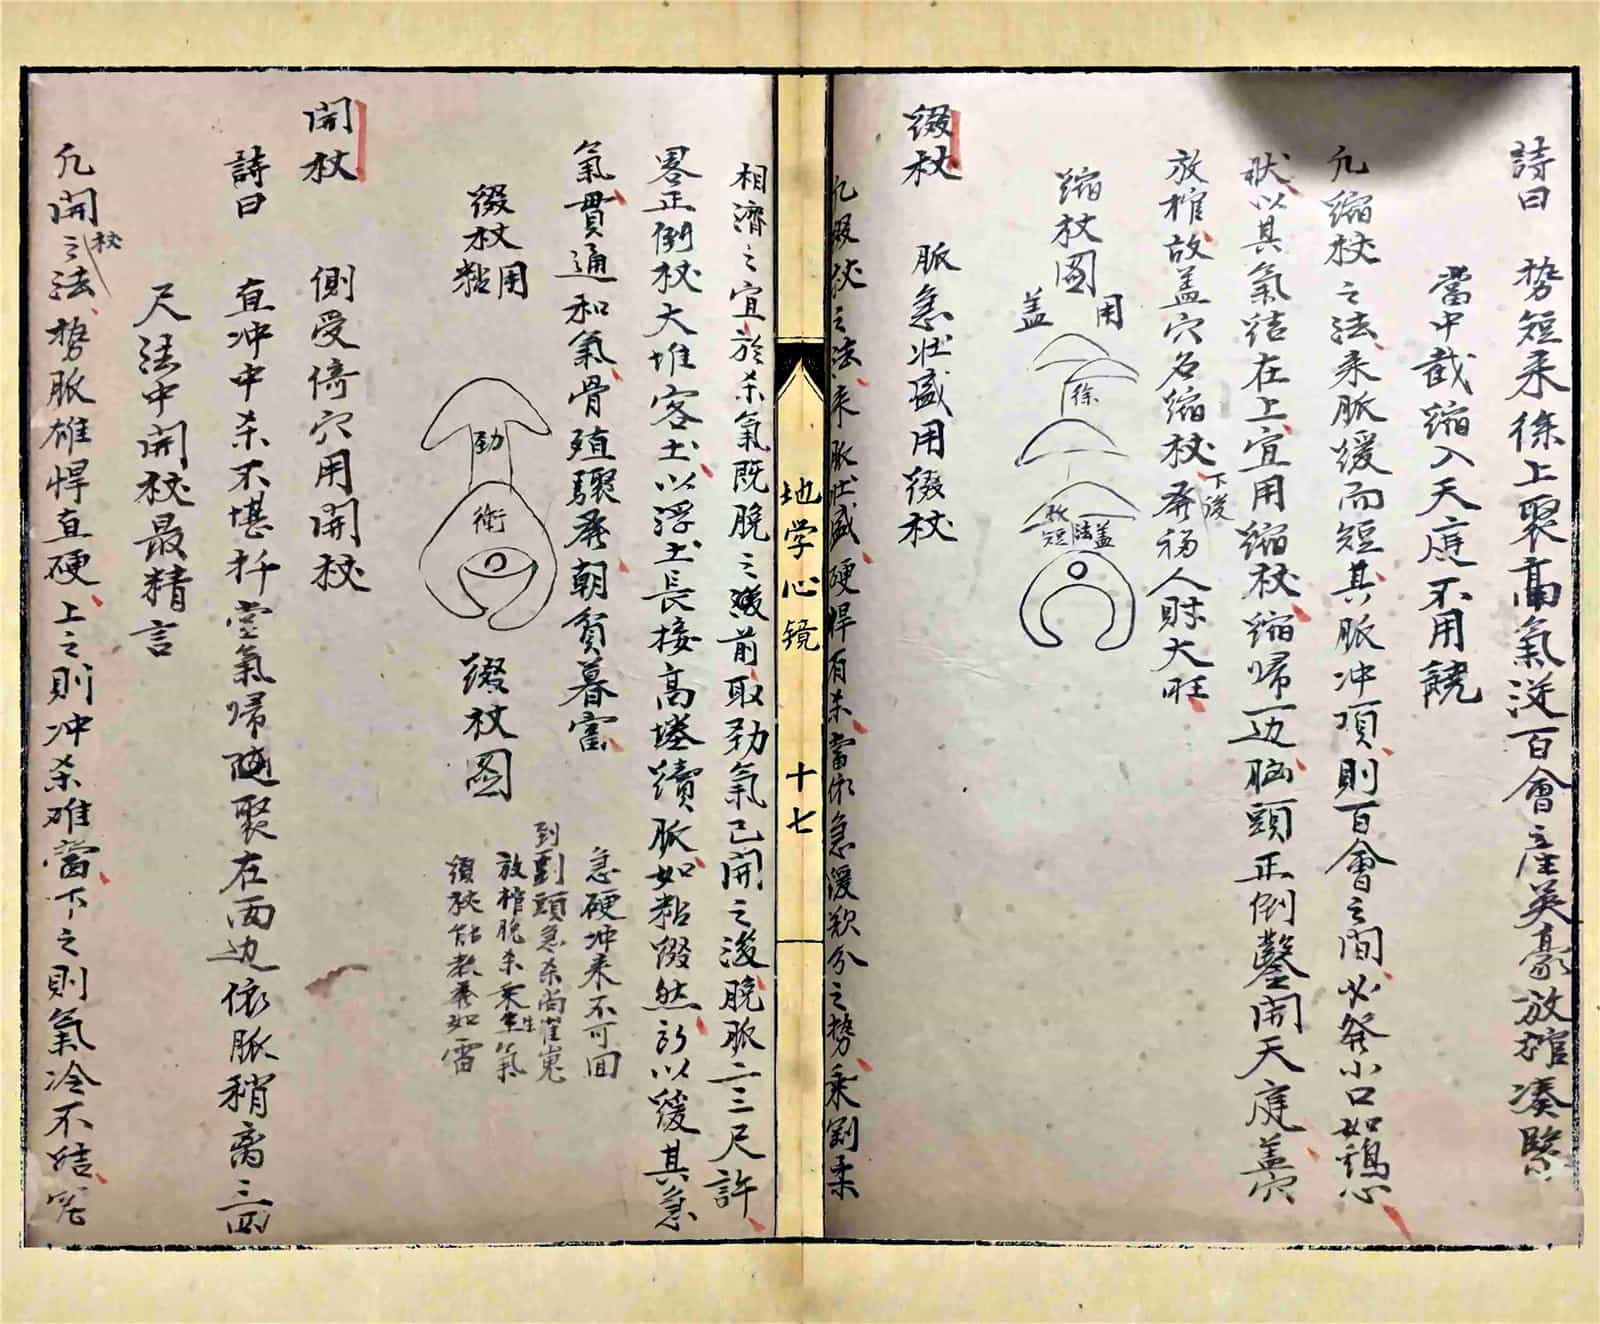 詩曰 势短来徐上聚高氣逆百會産英豪放棺凑緊
當中截縮入天庭不用饒
凢縮杖之法来脈缓而短其脈冲項則百會之間必發小口如鷄心
状以其氣结在上宜用縮杖縮帰一边脑頭正倒鑿開天庭盖穴
放棺故盖穴名縮杖下後發福人財大旺
縮杖圖
用
盖
徐
脉短
法盖
綴杖 脈急壮盛用綴杖
凢綴杖之法来脉壮盛硬悍有杀當依急缓欵分之势乘剛柔
地学心镜
十七
相濟之宜於杀氣既脱之後前取劲氣已開之後脱脈二三尺許
畧正倒杖大堆客土以浮土長接高墘續脈如粘綴然所以缓其急
氣貫通和氣骨殖驟發朝貧暮富
綴杖用
粘
劲
衝
綴杖圖
急硬冲来不可囬
到到頭急杀尚崔嵬
放棺脱杀乘生氣
須教能教發如雷
開杖 側受倚穴用開杖
詩曰 直冲中杀不堪扦堂氣帰随聚在两边依脈稍离三四
尺法中開杖最精言
凢開杖之法势脈雄悍直硬上之則冲杀难當下之則氣冷不结宜